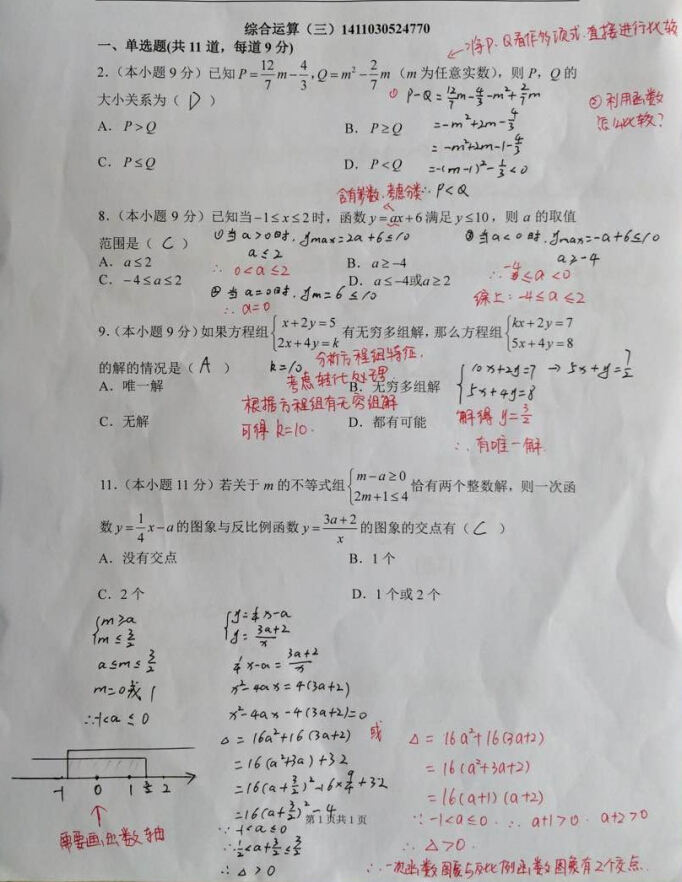 综合运算（三）1411030524770
一、单选题(共11道，每道9分)
←将P、Q看作多项式，直接进行比较
2.（本小题9分）已知P=12/7m-4/3，Q=m²-2/7m（m为任意实数），则P，Q的
大小关系为（ D ）
① P-Q=12/7m-4/3-m²+2/7m
=-m²+2m-4/3
=-m²+2m-1-1/3
=-(m-1)²-1/3<0
∴P<Q
②利用函数
怎么比较？
A. P>Q B. P≥Q
C. P≤Q D. P<Q
含有参数，考虑分类
8.（本小题9分）已知当-1≤x≤2时，函数y=ax+6满足y≤10，则a的取值
范围是（ C ）
①当a>0时，ymax=2a+6≤10
a≤2
∴0<a≤2
③当a<0时，ymax=-a+6≤10
a≥-4
∴-4≤a<0
A. a≤2 B. a≥-4
C. -4≤a≤2 D. a≤-4或a≥2
②当a=0时，ym=6≤10
∴a=0
综上：-4≤a≤2
9.（本小题9分）如果方程组{x+2y=5 2x+4y=k 有无穷多组解，那么方程组{kx+2y=7 5x+4y=8
的解的情况是（ A ）
k=10
分析方程组特征，
考虑转化处理
A. 唯一解 B. 无穷多组解
根据方程组有无穷组解
可得k=10.
C. 无解 D. 都有可能
{10x+2y=7 → 5x+y=7/2
5x+4y=8
解得y=3/2
∴有唯一解.
11.（本小题11分）若关于m的不等式组{m-a≥0 2m+1≤4 恰有两个整数解，则一次函
数y=1/4x-a的图象与反比例函数y=(3a+2)/x的图象的交点有（ C ）
A. 没有交点 B. 1个
C. 2个 D. 1个或2个
{m≥a
m≤3/2
a≤m≤3/2
m=0或1
∴-1<a≤0
-1 0 1 3/2 2
需要画出数轴
{y=1/4x-a
y=(3a+2)/x
1/4x-a=(3a+2)/x
x²-4ax=4(3a+2)
x²-4ax-4(3a+2)=0
Δ=16a²+16(3a+2)
=16(a²+3a)+32
=16(a+3/2)²-16×9/4+32
=16(a+3/2)²-4
∵-1<a≤0
∴1/2<a+3/2≤3/2
∴Δ>0
或
Δ=16a²+16(3a+2)
=16(a²+3a+2)
=16(a+1)(a+2)
∵-1<a≤0 ∴a+1>0 a+2>0
∴Δ>0.
∴一次函数图象与反比例函数图象有2个交点.
第1页共1页